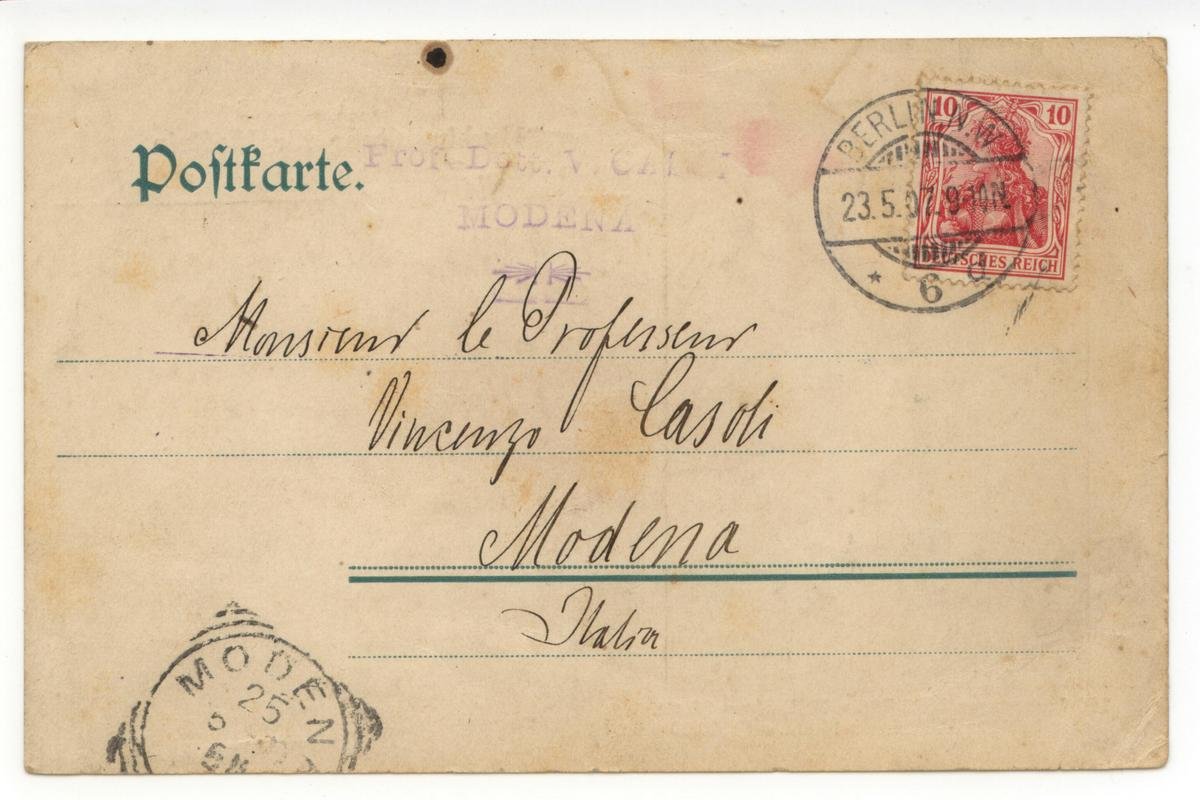 Postkarte.
Prof. Dott. V.
MODENA
10 10
DEUTSCHES REICH
BERLIN N.W.
23.5.07. 9-10N.
* 6 d
Monsieur le Professeur
Vincenzo Casoli
Modena
Italia
MODEN
25